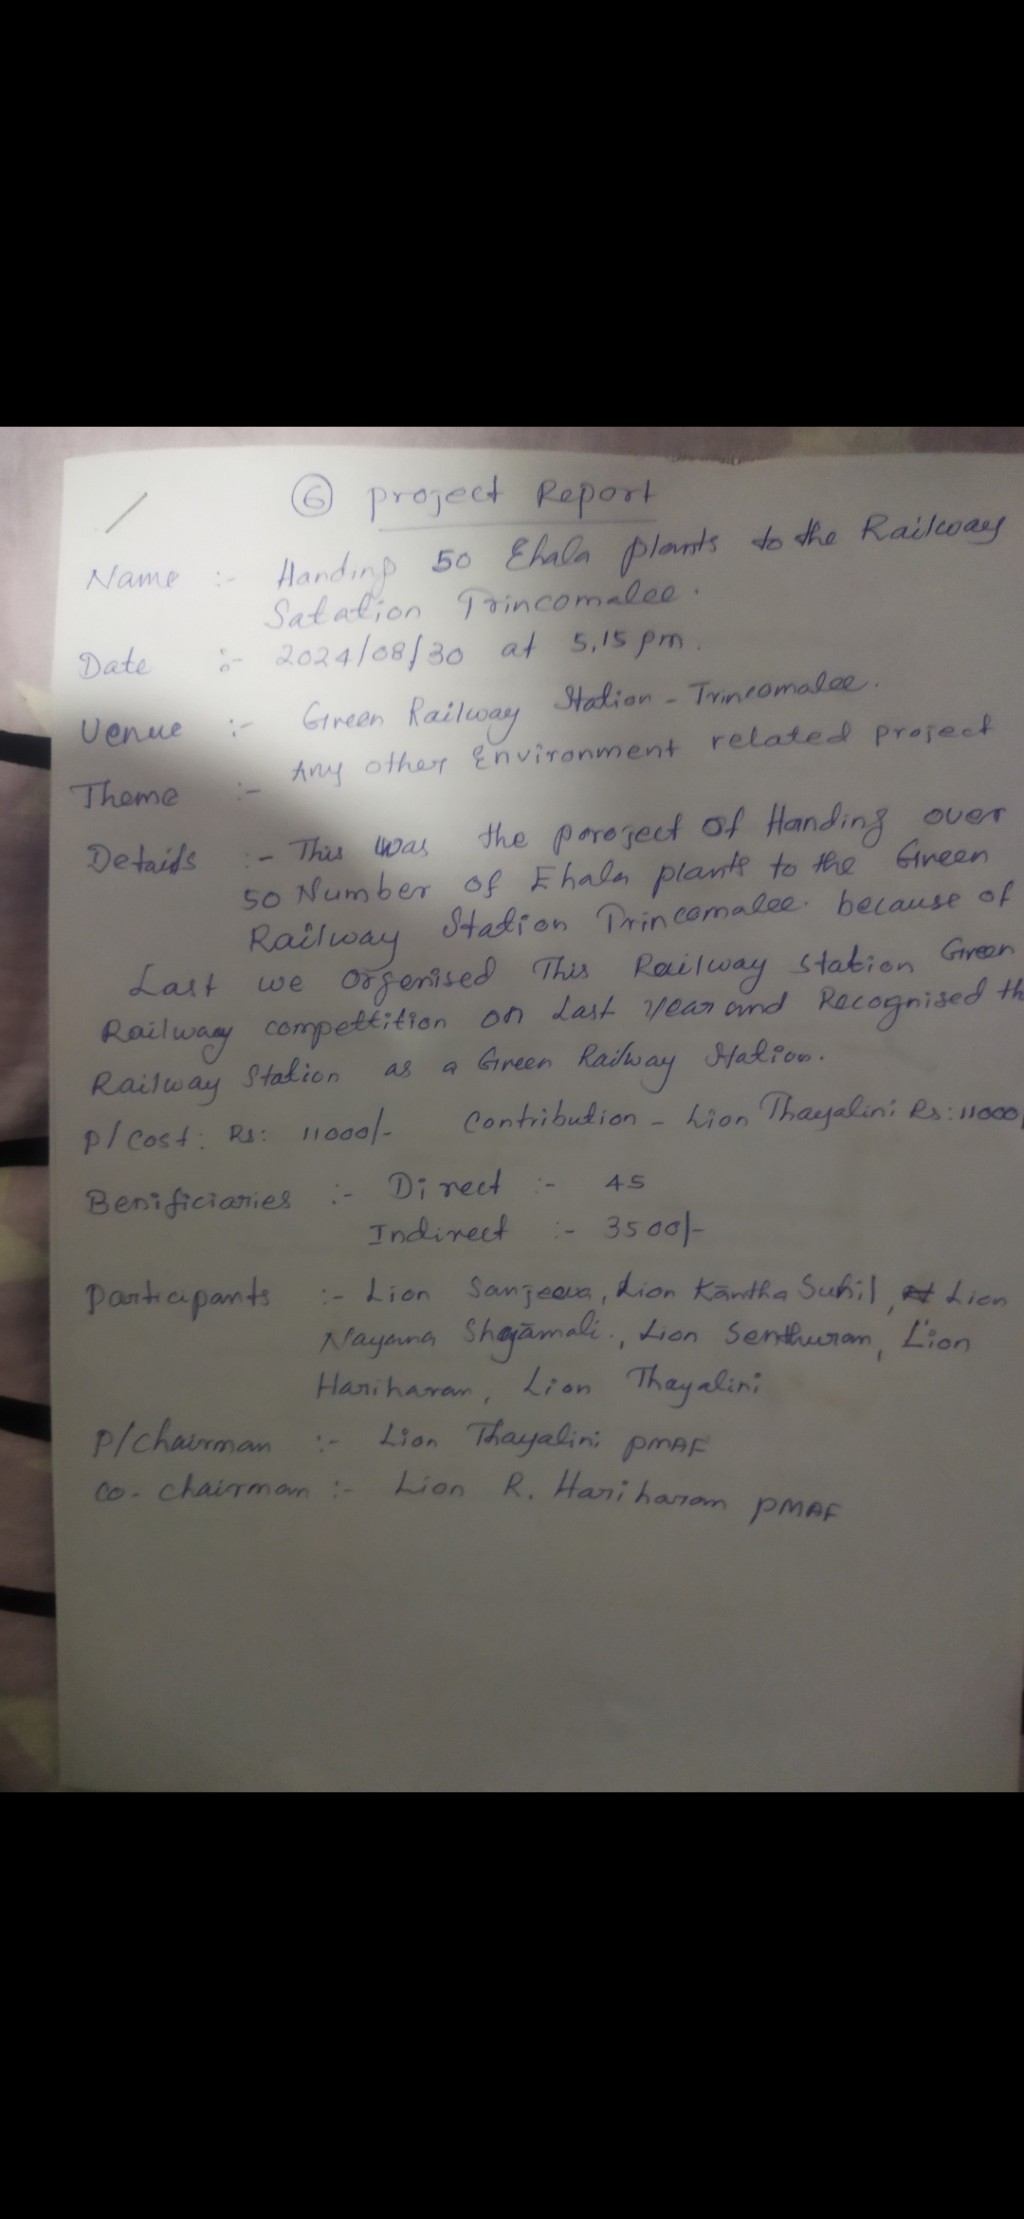 6 Project Report
Name :- Handing 50 Ehala plants to the Railway
Satation Trincomalee.
Date :- 2024/08/30 at 5.15 pm.
Venue :- Green Railway Station - Trincomalee.
Theme :- Any other Environment related project
Details :- This was the poroject of Handing over
50 Number of Ehala plants to the Green
Railway Station Trincomalee. because of
Last we orgenised This Railway station Green
Railway compettition on Last year and Recognised th
Railway Station as a Green Railway Station.
P/Cost: Rs: 11000/- Contribution - Lion Thayalini Rs: 11000
Benificiaries :- Direct :- 45
Indirect :- 3500/-
Participants :- Lion Sanjeeva, Lion Kantha Suhil, Lion
Nayana Shayamali., Lion Senthuran, Lion
Hariharan, Lion Thayalini
P/Chairman :- Lion Thayalini PMAF
Co-chairman :- Lion R. Hariharan PMAF